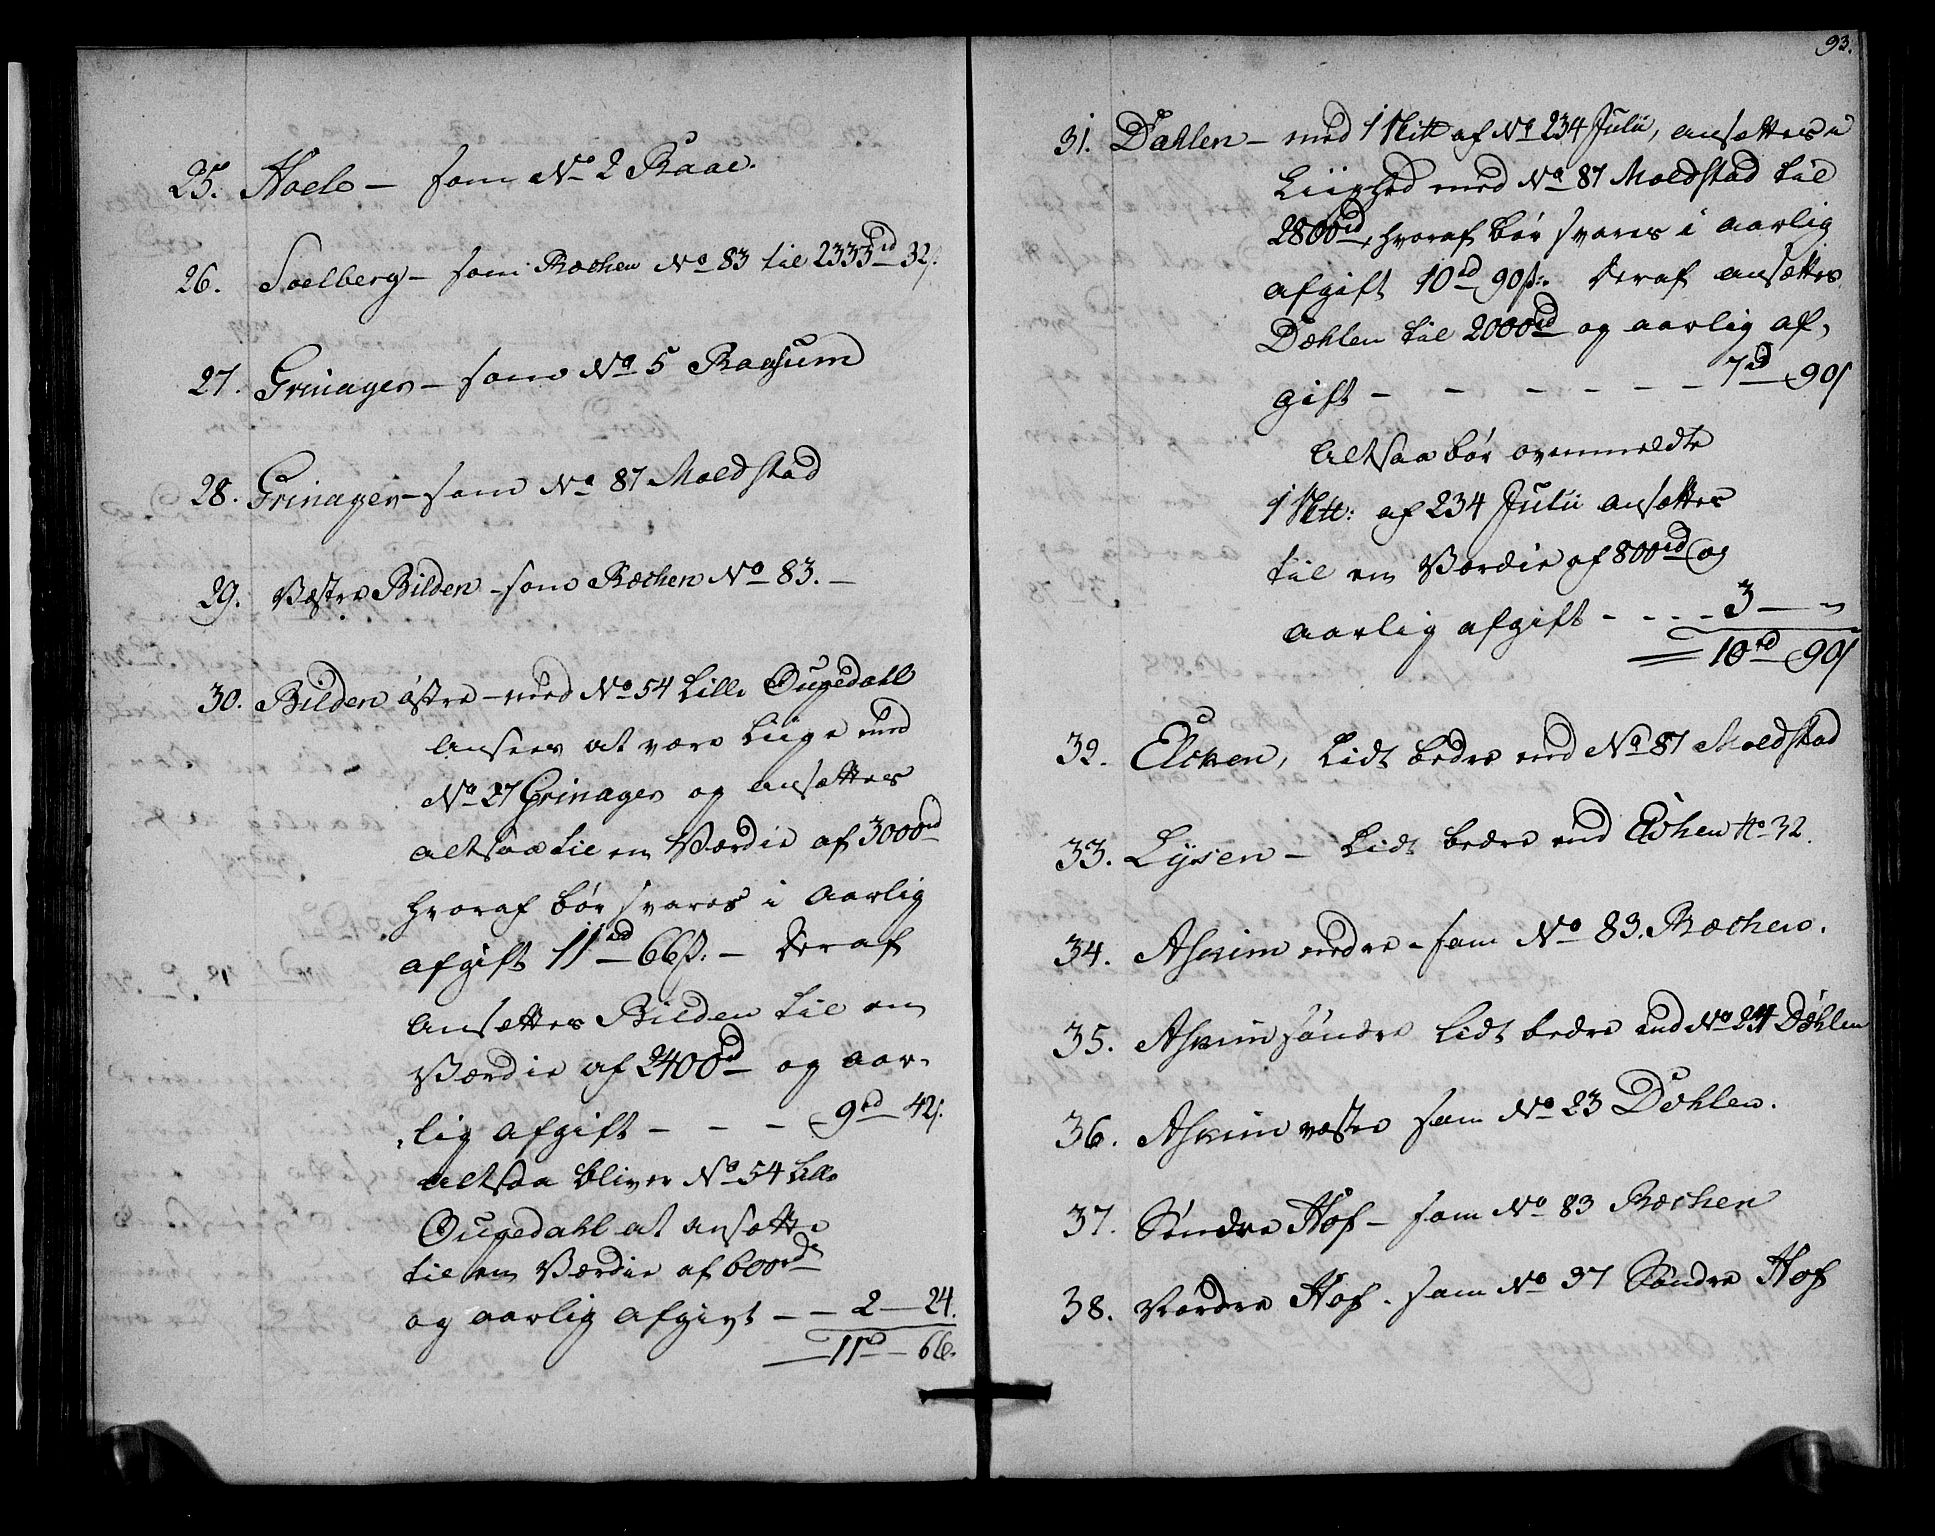 25. Hoele – som No 2 Raae.
26. Soelberg – som Rochen No 83 til 2333rd 32ß.
27. Grinager – som No 5 Raasum
28. Grinager – som No 87 Moldstad
29. Væstre Bilden – som Rochen No 83. –
30. Bilden östre – med No 54 Lille Ougedahl
ansees at være Liige med
No 27 Grinager og ansættes
altsaa til en Værdie af 3000rd
hvoraf bör svares i aarlig
afgift 11rd 66ß. – Deraf
ansættes Bilden til en
Værdie af 2400rd og aar-
lig afgift – – – 9rd 42ß.
altsaa bliver No 54 Lille
Ougedahl at ansætte
til en Værdie af 600rd
og aarlig afgivt – – 2 – 24.
11rd – 66.
93.
31. Dæhlen – med 1 af No 234 Julii, ansættes i
Liighed med No 87 Moldstad til
2800rd, hvoraf bör svares i aarlig
afgift 10rd 90ß. Deraf ansættes
Dæhlen til 2000rd og aarlig af-
gift – – – – – – 7rd 90ß
Altsaa bör ovenmeldte
1 af 234 Julii ansættes
til en Værdie af 800rd og
aarlig afgift – – – – 3 – "
10rd 90ß
32. Elvken, Lidt bedre end No 87 Moldstad
33. Lysen – Lidt bedre end No 32.
34. Askim nedre – som No 83. Rochen.
35. Askim söndre Lidt bedre end No 24 Döhlen
36. Askim væstre som No 23 Döhlen.
37. Söndre Hof – som No 83 Rochen
38. Nordre Hof. som No 37 Söndre Hof